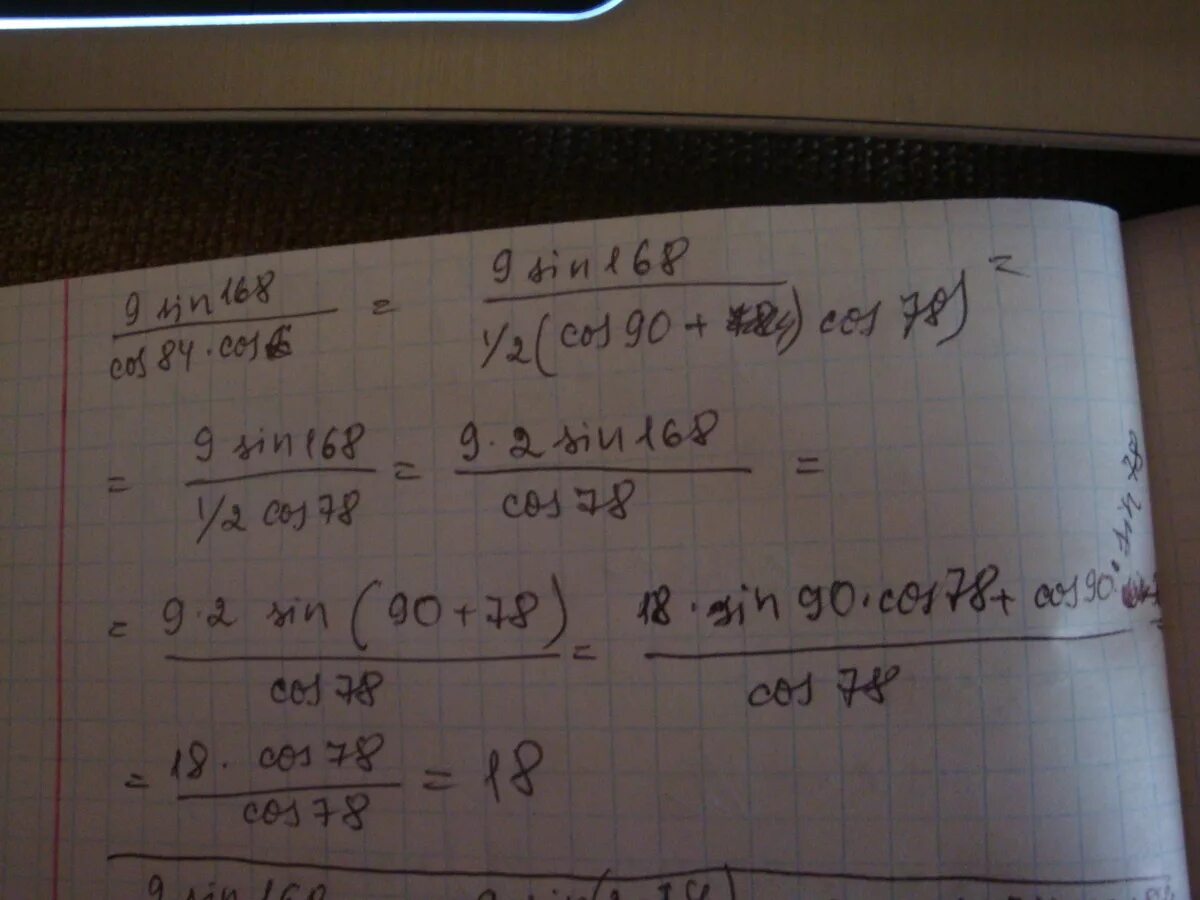 9 sin168 / cos84·cos6 = 9 sin168 / 1/2(cos90 + ) cos 78) =
= 9 sin168 / 1/2 cos78 = 9·2 sin168 / cos78 =
= 9·2 sin (90+78) / cos78 = 18·sin90·cos78+ cos90· sin 78 / cos78
= 18· cos78 / cos78 = 18
9 sin168